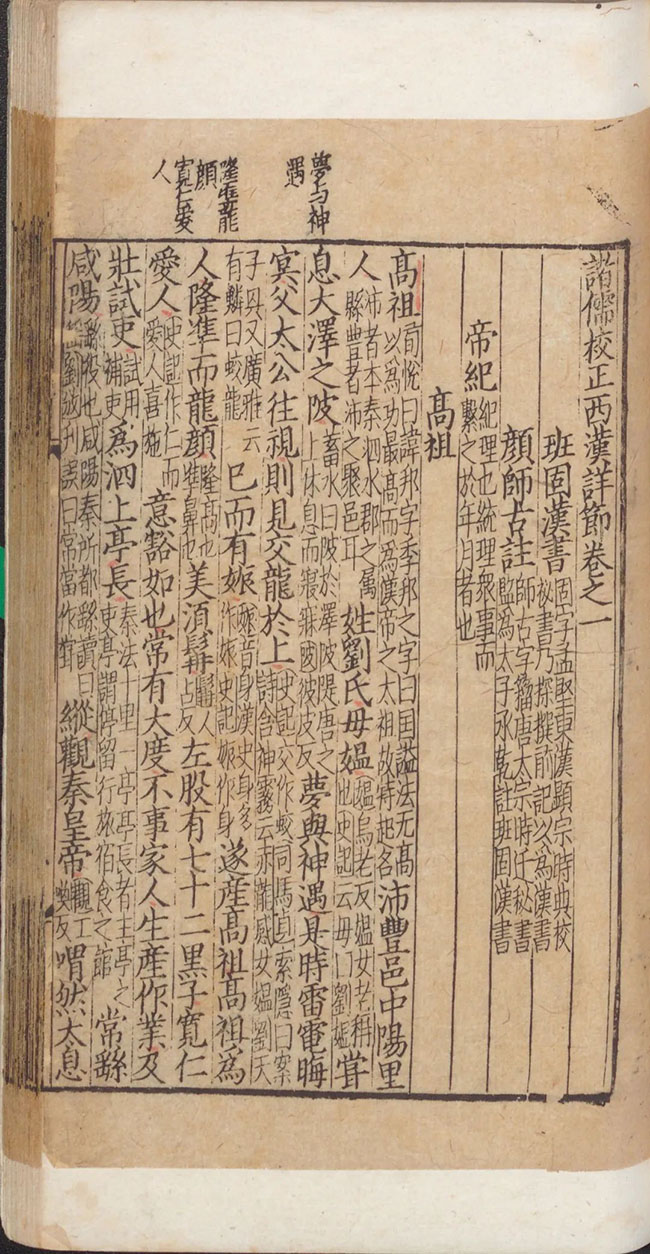 諸儒校正西漢詳節卷之一
班固漢書 固字孟堅東漢顯宗時典校
秘書乃探撰前記以為漢書
顏師古註 師古字籀唐太宗時迁秘書
監為太子承乾註班固漢書
帝紀 紀理也統理衆事而
繫之於年月者也
高祖
高祖 荀悅曰諱邦字季邦之字曰国謚法无高
以為功最高而為漢帝之太祖故特起名 沛豐邑中陽里
人 沛者本秦泗水郡之属
縣豐者沛之聚邑耳 姓劉氏母媪 媪烏老反媪女老稱
也史記云母 劉媪 甞
息大澤之陂 畜水曰陂於澤陂堤唐之
上休息而寢寐陂彼皮反 夢與神遇是時雷電晦
冥父太公往視則見交龍於上 史記交作蛟司馬貞索隱曰案
詩含神霧云赤龍感女媪劉天
子 又廣雅云
有鱗曰蛟龍 已而有娠 娠音身漢史身多
作娠史記娠作身 遂産高祖高祖為
人隆準而龍顔 隆高也
準鼻也 美須髯 髯人
占反 左股有七十二黒子寛仁
愛人 史記作仁而
愛人喜施 意豁如也常有大度不事家人生産作業及
壯試吏 試用
補吏 為泗上亭長 秦法十里一亭亭長者主亭之
吏亭謂停留行旅宿食之館 常繇
咸陽 繇役也咸陽秦所都繇讀曰
劉攽刊誤曰常當作甞 縱觀秦皇帝 觀工
喚反 喟然太息
夢与神
遇
隆準龍
顔
寛仁愛
人